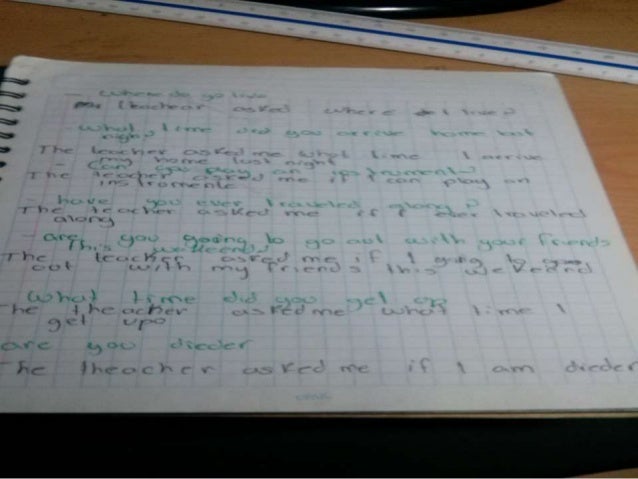 - where do yo live
teachear asked where I live?
- what time did you arrive home last
night?
The teacher asked me what time I arrive
my home last night
- Can you play an instrument?
The teacher asked me if I can play an
instromente
- have you ever traveled along?
The teacher asked me if I ever traveled
along
- are you going to go out with your friends
this weekend?
The teacher asked me if I going to
out with my friends this wekeand
what time did you get up
The theacher asked me what time I
get upo
are you dieder
The theacher asked me if I am dieder